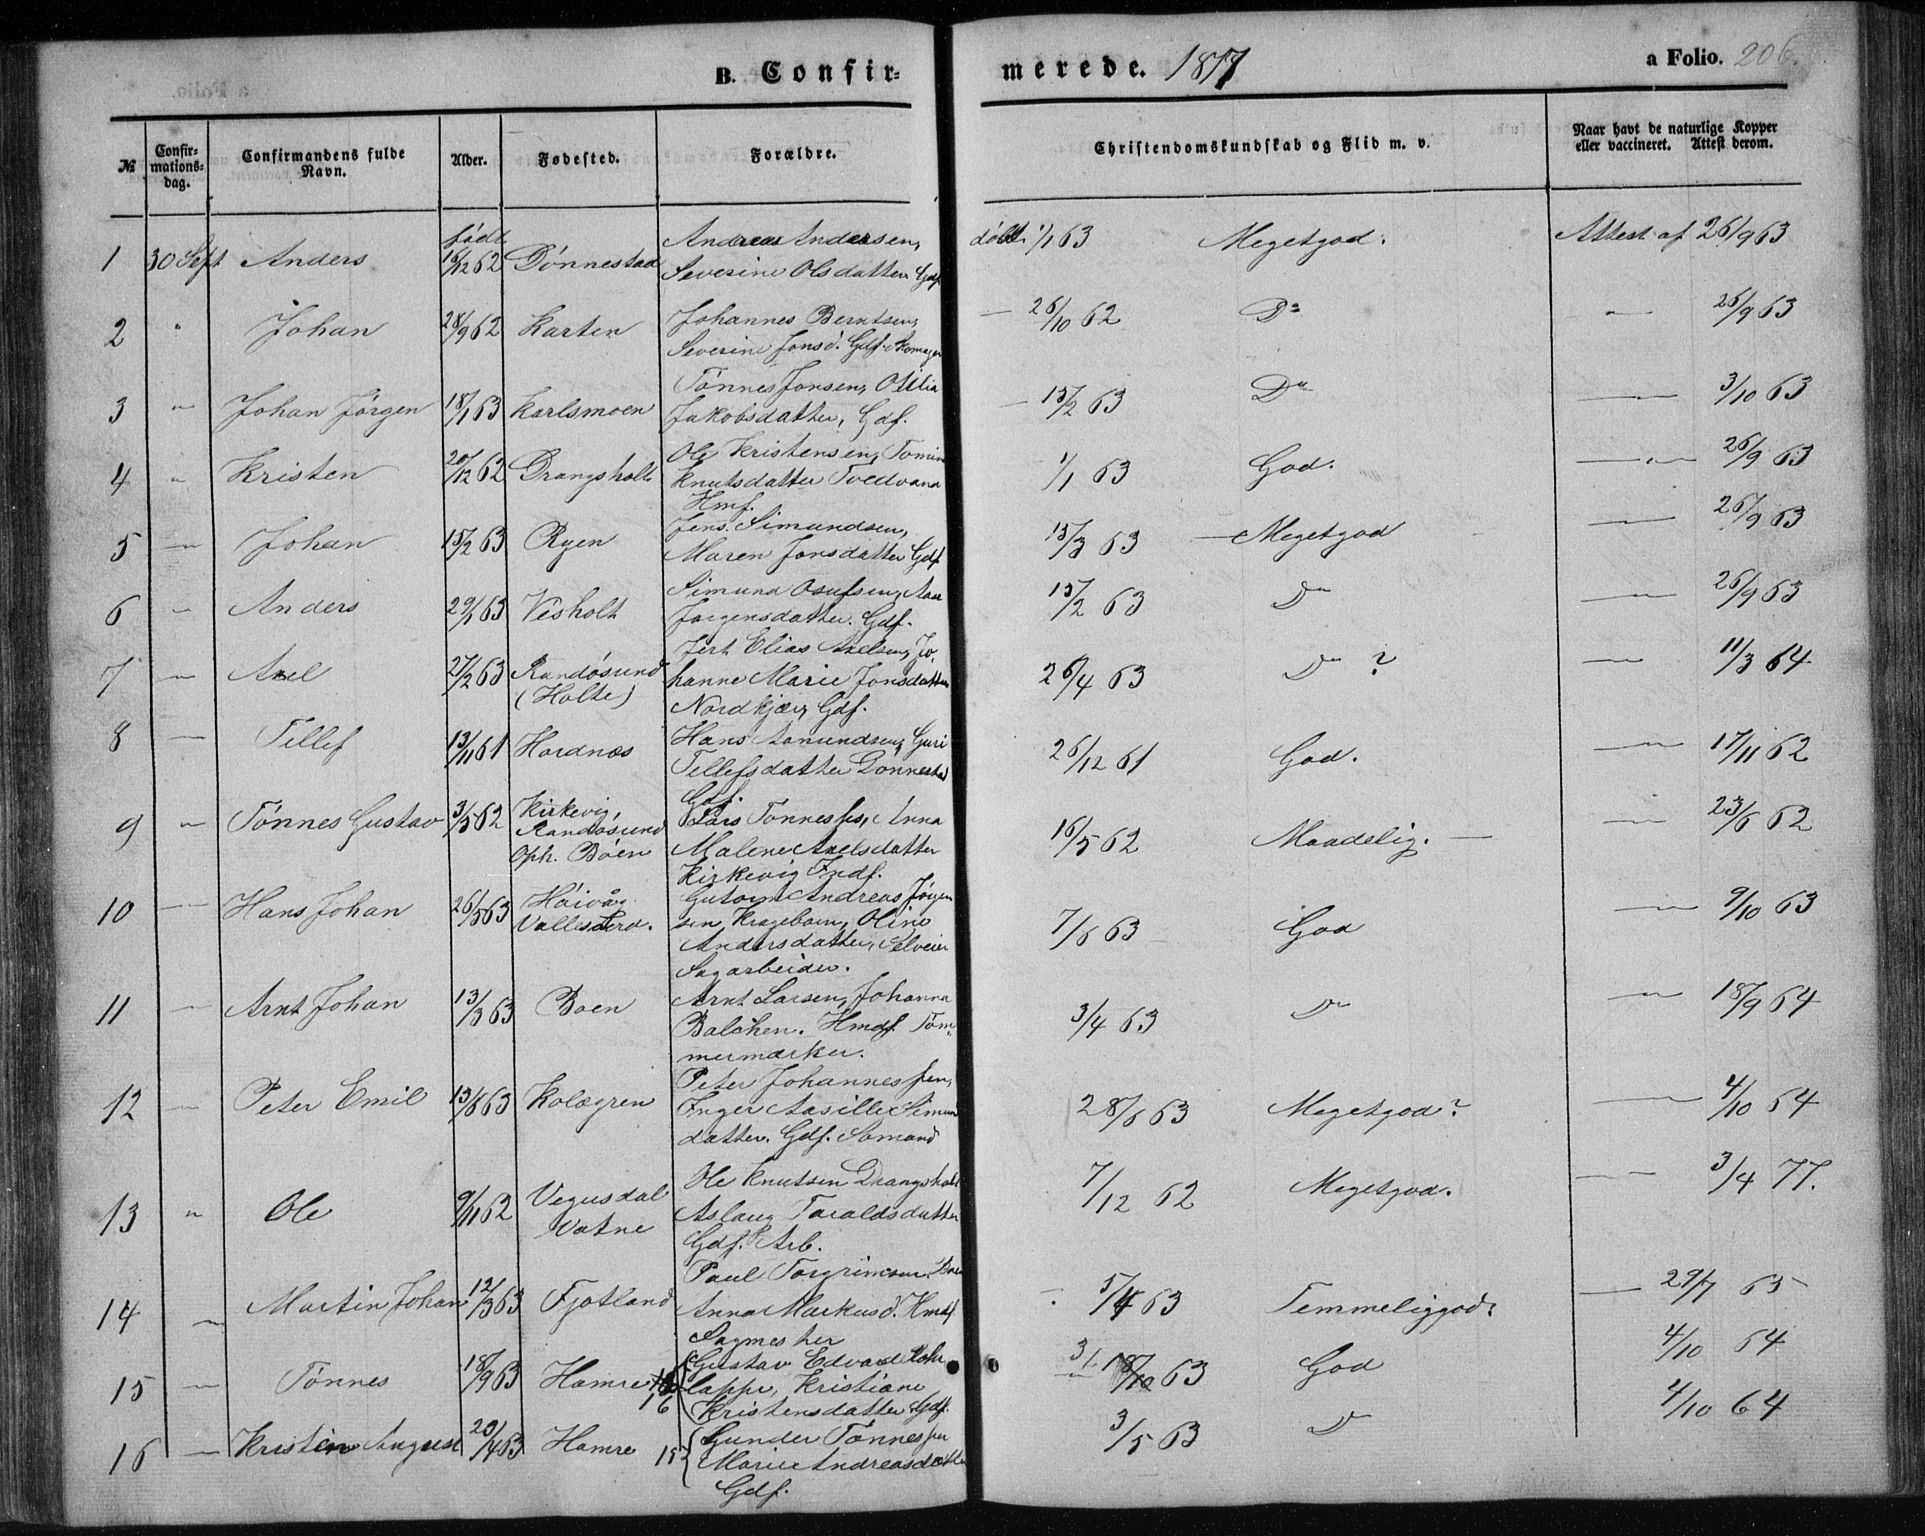 B. Confir- merede. 1877 a Folio. 206.
№ Confir-mations-dag. Confirmandens fulde Navn. Alder. Fødested. Forældre. Christendomskundskab og Flid m. v. Naar havt de naturlige Kopper eller vaccineret. Attest derom.
født Andreas Andersen, døbt 1/1 63 Megetgod. Attest af 26/9 63
1 30 Sept Anders 16/12 62 Dønnestad Severine Olsdatter Gdf
2 " Johan 28/9 62 Karten Johannes Berntsen, — 26/10 62 Do — 26/9 63
Severine Jonsd. Gdf. Skomager
3 " Johan Jörgen 18/1 63 Karlsmoen Tönnes Jonsen, Otilia — 15/2 63 Do — 3/10 63
Jakobsdatter, Gdf.
4 " Kristen 20/12 62 Drangsholt Ole Kristensen, Tomine 1/1 63 God. —"— 26/9 63
Knutsdatter Tvedvana
Hmf.
5 — Johan 15/2 63 Ryen Jens Simundsen, 15/3 63 — Megetgod — 26/9 63
Maren Jonsdatter Gdf
6 " Anders 29/1 63 Visholt Simund Osufsen, Aase 15/2 63 Do — 26/9 63
Jorgensdatter. Gdf.
7 — Axel 27/2 63 Randösund (Holte) Jert Elias Axelsen, Jo- 26/4 63 Do ? — 11/3 64
hanne Marie Jonsdatter
Nordkjær, Gdf.
8 — Tellef 13/11 61 Hordnæs Hans Aamundsen, Guri 26/12 61 God. — 17/11 62
Tellefsdatter Donnestad
Gdf.
9 " Tönnes Gustav 3/5 62 Kirkevig, Randösund Oph. Böen Lars Tonnessen, Anna 16/5 62 Maadelig. — — 23/6 62
Malene Axelsdatter
Kirkevig Indf.
10 — Hans Johan 26/5 63 Höivåg Vallesverd. Gutorm Andreas Jörgen 7/6 63 God — 9/10 63
sen Kragebom, Oline
Andersdatter, Selveier
Sagarbeider.
11 — Arnt Johan 13/3 63 Boen Arnt Larsen, Johanna 3/4 63 Do — 18/9 64
Balchen. Hmdf. Töm-
mermærker.
12 — Peter Emil 13/6 63 Kologren Peter Johannessen, 28/6 63 Megetgod? — 4/10 64
Inger Aasille Simun
datter. Gdf. Sömand
13 " Ole 9/11 62 Vegusdal Vatne Ole Knutsen Drangsholt 7/12 62 Megetgod. — 3/4 77.
Aslaug Taraldsdatter
Gdf. Arb.
14 " Martin Johan 12/3 63 Fjotland Paul Torgrimsen Boen 5/4 63 Temmeliggod. — 29/7 65
Anna Markusd. Hmdf
Sagmester
15 — Tönnes 18/9 63 Hamre 16 Gustav Edvard 18/10 63 God 4/10 64
Kristiane
Kristensdatter Gdf.
16 — Kristen August 20/4 63 Hamre 15 Gunder Tønnessen 3/5 63 Do 4/10 64
Marie Andreasdatter
Gdf.